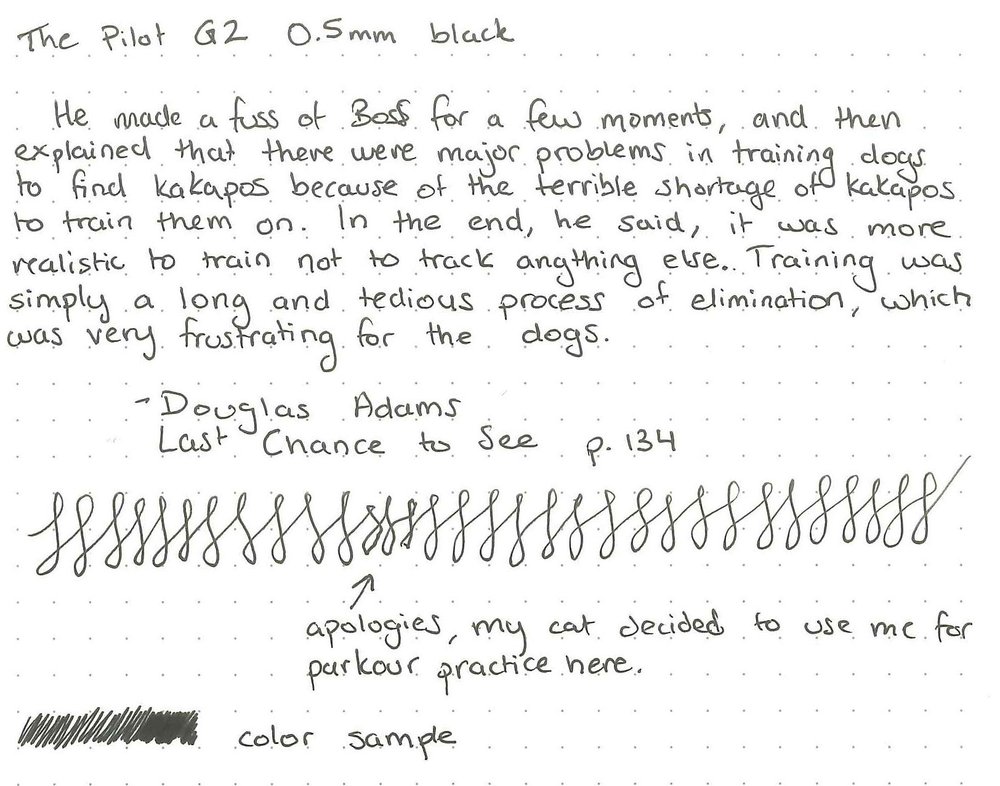 The Pilot G2 0.5mm black
He made a fuss of Boss for a few moments, and then
explained that there were major problems in training dogs
to find kakapos because of the terrible shortage of kakapos
to train them on. In the end, he said, it was more
realistic to train not to track angthing else. Training was
simply a long and tedious process of elimination, which
was very frustrating for the dogs.
- Douglas Adams
Last Chance to See p. 134
apologies, my cat decided to use me for
parkour practice here.
color sample